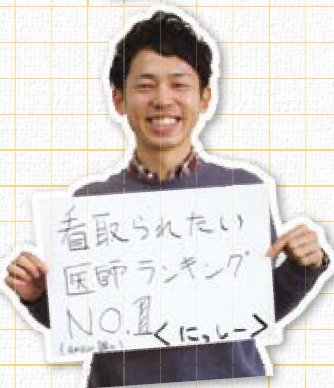 看取られたい
医師ランキング
NO.1
<にっしー>